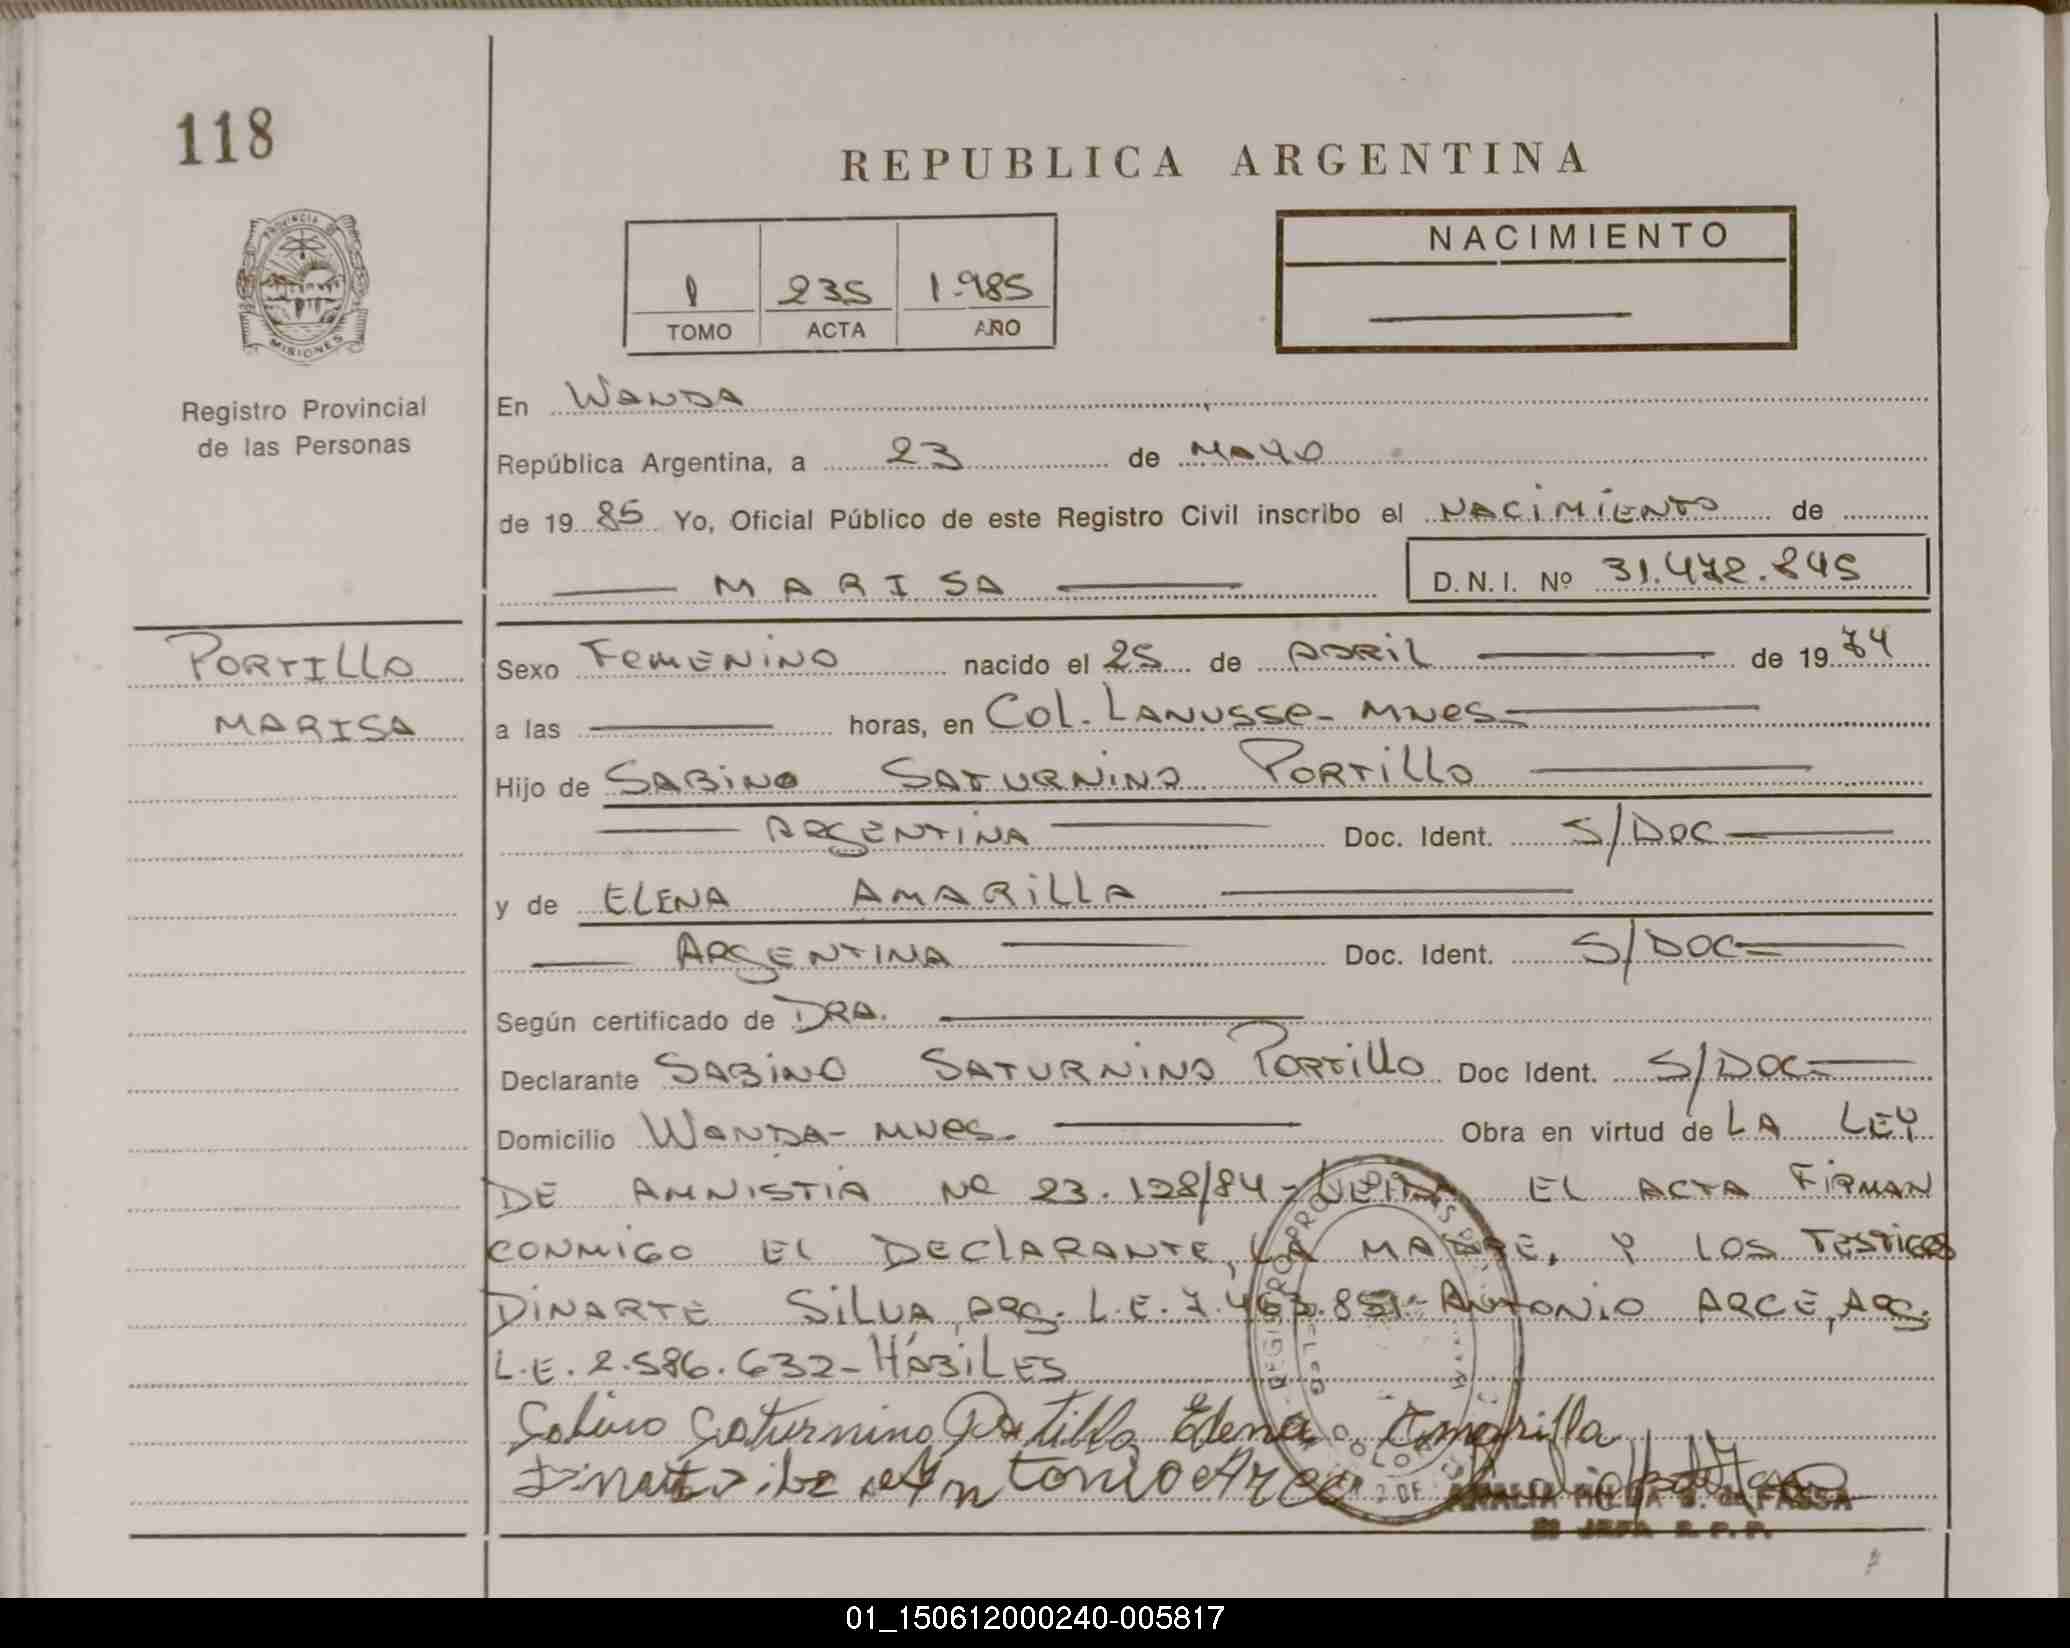 118
REPUBLICA ARGENTINA
PROVINCIA DE
MISIONES
Registro Provincial
de las Personas
1 235 1.985
TOMO ACTA AÑO
NACIMIENTO
En WANDA
República Argentina, a 23 de MAYO
de 19 85 Yo, Oficial Público de este Registro Civil inscribo el NACIMIENTO de
MARISA
D.N.I. Nº 31.472.845
PORTILLO
MARISA
Sexo FEMENINO nacido el 25 de ABRIL de 19 74
a las horas, en COL. LANUSSE- MNES-
Hijo de SABINO SATURNINO PORTILLO
ARGENTINA Doc. Ident. S/DOC
y de ELENA AMARILLA
ARGENTINA Doc. Ident. S/DOC
Según certificado de DRA.
Declarante SABINO SATURNINO PORTILLO Doc Ident. S/DOC
Domicilio WANDA- MNES. Obra en virtud de LA LEY
DE AMNISTIA Nº 23.128/84- LEIDA EL ACTA FIRMAN
CONMIGO EL DECLARANTE, LA MADRE, Y LOS TESTIGOS
DINARTE SILVA, ARG. L.E. 7.463.851- ANTONIO ARCE, ARG.
L.E. 2.586.632- HÁBILES
Sabino Saturnino Portillo Elena Amarilla
Antonio Arce
ANALIA HILDA S. de FASSA
JEFA R.P.P.
01_150612000240-005817